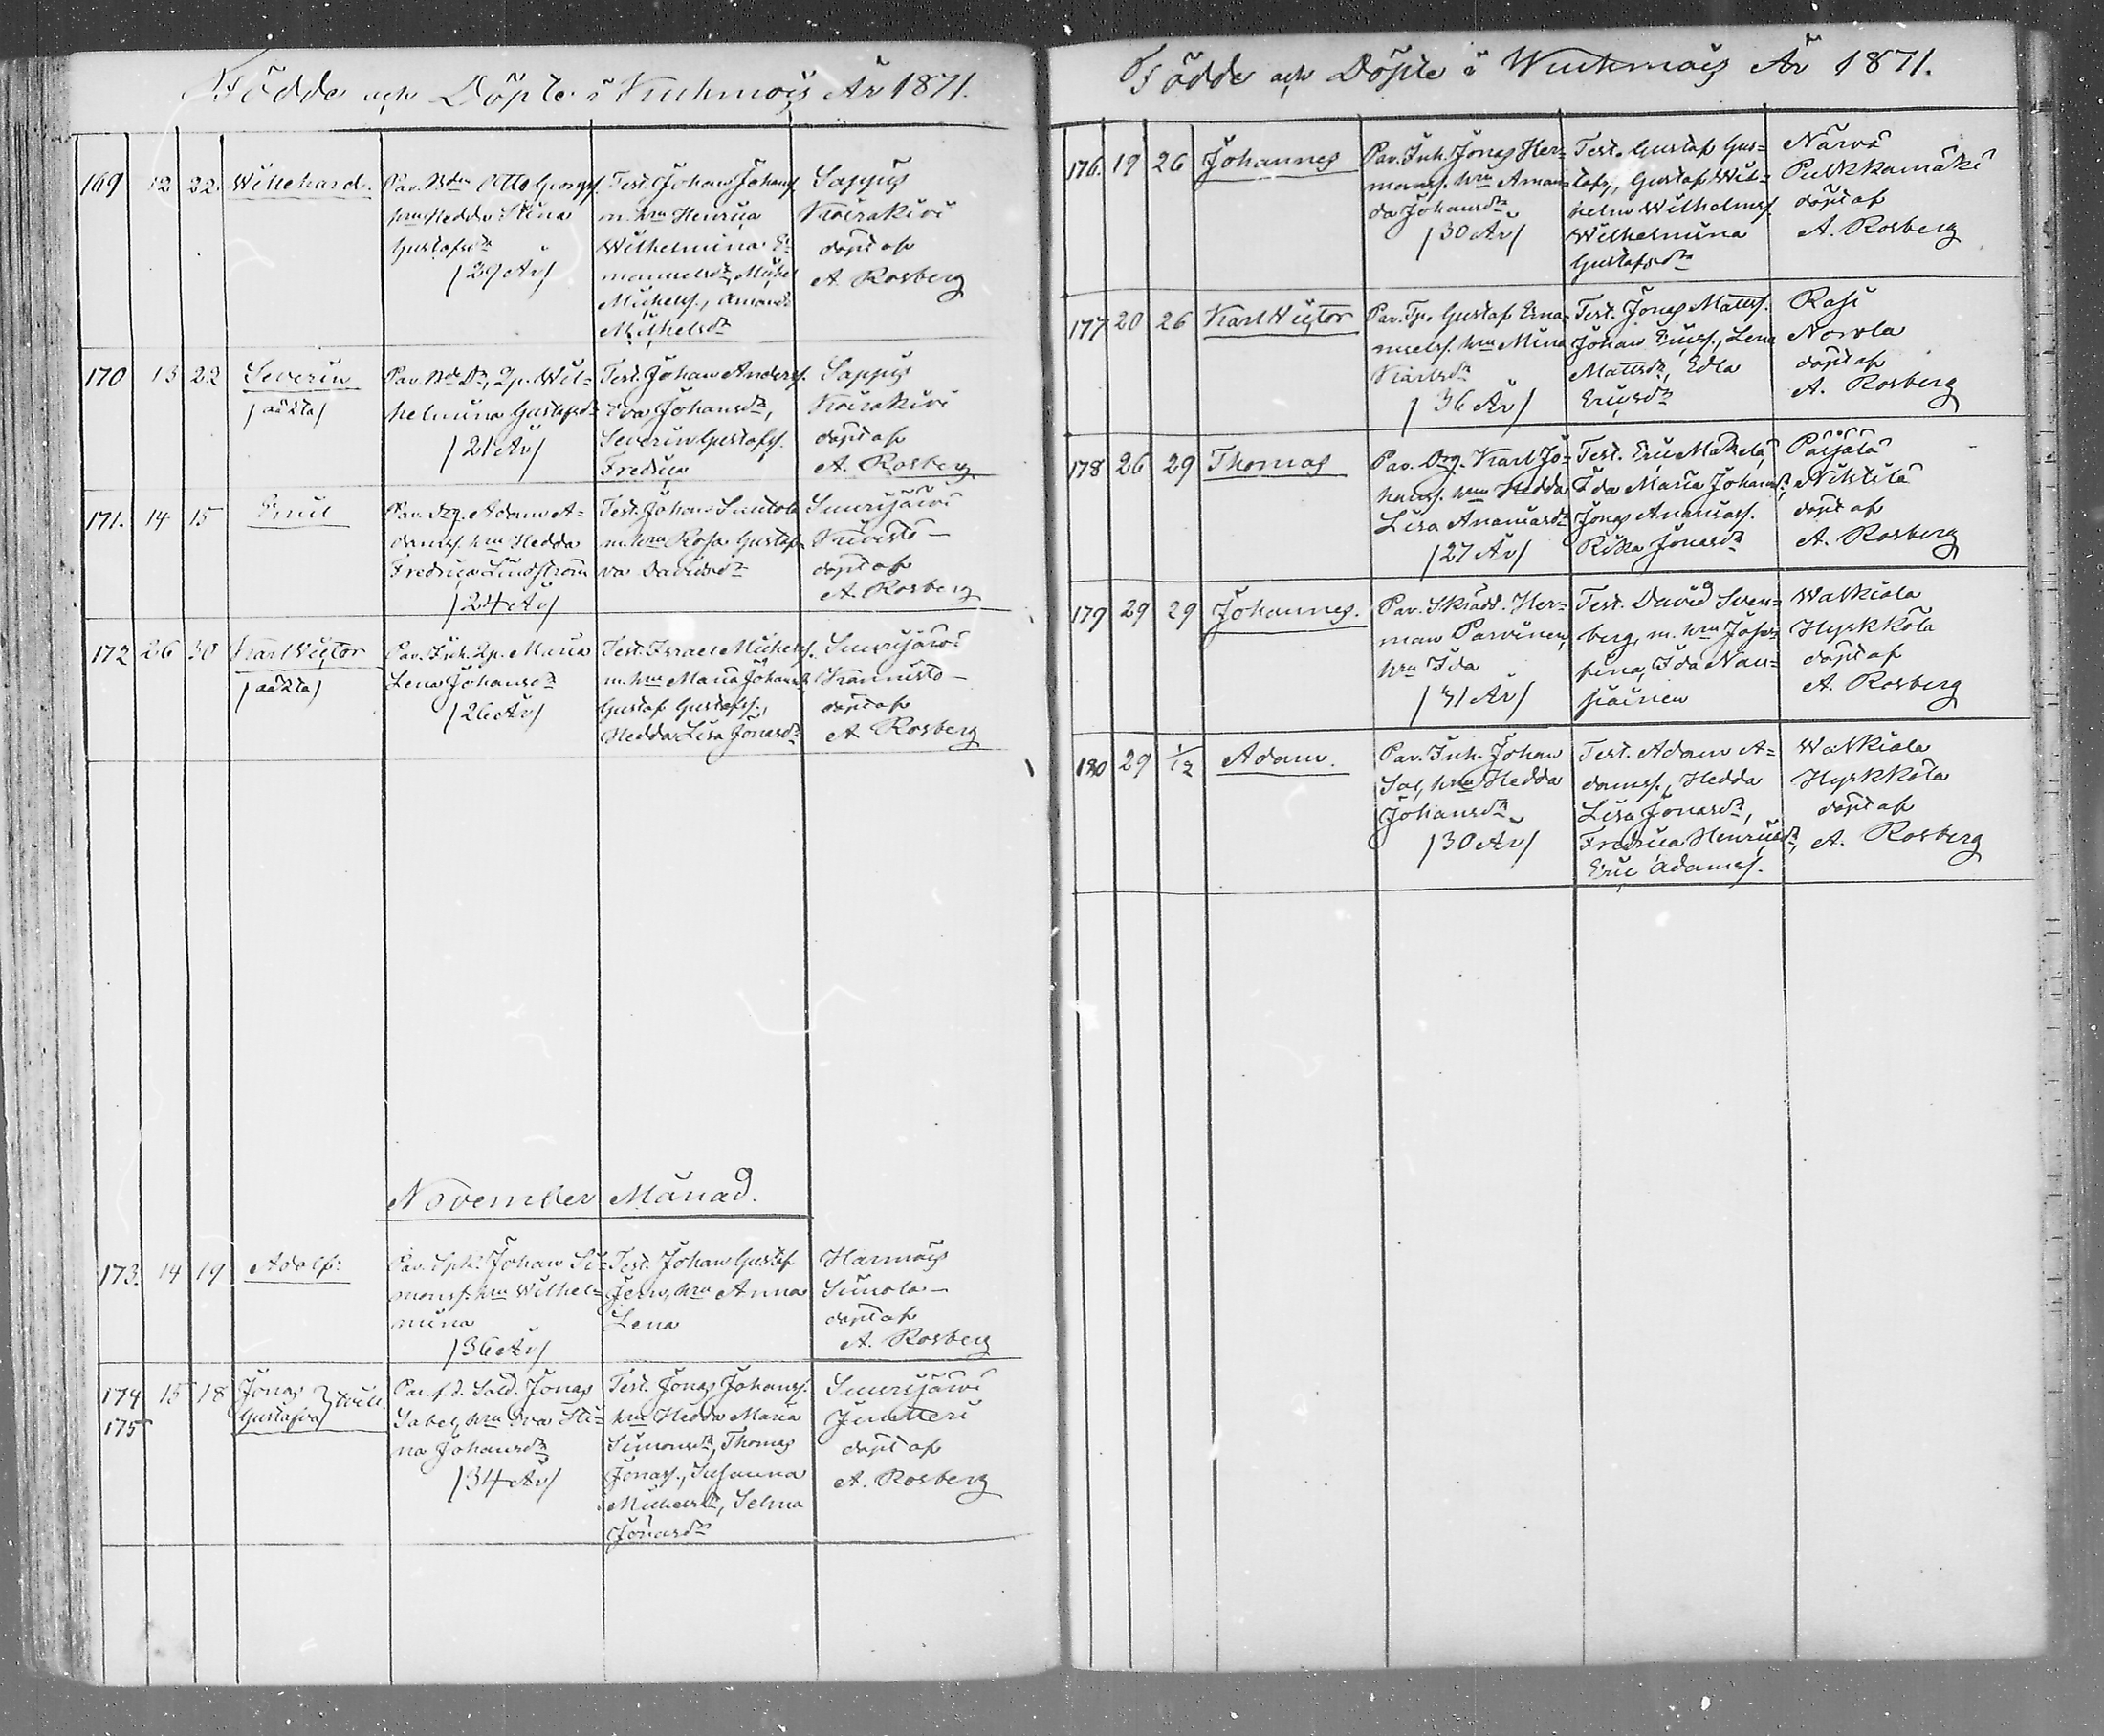 Födde och Döpte i Kuhmois År 1871.
169 12 22. Willehard.
Par. Bdn Otto Georgss.
hru Hedda Stina
Gustafsdr
/29 År/
Test. Johan Johanss.
m. hru Henrica
Wilhelmina E-
manuelsdr, Michel
Michelss., Amanda
Michelsdr
Sappus
Koirakivi
döpt af
A. Rosberg
170 13 22 Severin
/oäkta/
Par. Bde Dr, Qp. Wil=
helmina Gustafsdr
/21 År/
Test. Johan Anderss.
Eva Johansdr,
Severin Gustafss.
Fredrica
Sappus
Koirakivi
döpt af
A. Rosberg
171. 14 15 Emil
Par. Drg. Adam A=
damss. hru Hedda
Fredrica Lindström
/24 År/
Test. Johan Suntola
m. hru Rosa Gustaf
va Davidsdr
Suurijärvi
Kivistö —
döpt af
A. Rosberg
172 26 30 Karl Victor
/oäkta/
Par. Inh. Qp. Maria
Lena Johansdr
/26 År/
Test. Israel Michelss.
m. hru Maria Johansdr
Gustaf Gustafss.,
Hedda Lisa Jonasdr
Suurijärvi
Kannisto —
döpt af
A Rosberg
November Månad.
173. 14 19 Adolf.
Par. Spk. Johan Si=
monss. hru Wilhel=
mina
/36 År/
Test. Johan Gustaf
Jern, hru Anna
Lena
Harmois
Simola —
döpt af
A. Rosberg
174 15 18 Jonas } tvill.
175 Gustafva
Par. f.d. Sold. Jonas
Sabel, hru Eva Sti=
na Johansdr
/34 År/
Test. Jonas Johanss.
hru Hedda Maria
Simonsdr, Thomas
Jonass., Susanna
Michelsdr, Selma
Jonasdr
Suurijärvi
Juntteri
döpt af
A. Rosberg
Födde och Döpte i Kuhmois År 1871.
176. 19 26 Johannes
Par. Inh. Jonas Her=
manss. hru Aman=
da Johansdr
/30 År/
Test. Gustaf Gus=
tafs., Gustaf Wil=
helm Wilhelmss.
Wilhelmina
Gustafsdr
Närvä
Pukkamäki
döpt af
A. Rosberg
177 20 26 Karl Victor
Par. Tp. Gustaf Ema
nuelss. hru Mina
Karlsdr
/36 År/
Test. Jonas Matss.
Johan Ericss., Lena
Mattsdr, Edla
Ericsdr
Rasi
Norola
döpt af
A. Rosberg
178 26 29 Thomas
Par. Drg. Karl Jo=
hanss. hru Hedda
Lisa Ananiasdr
/27 År/
Test. Eric Mäkelä
Ida Maria Johansdr,
Jonas Ananiass.
Rika Jonasdr
Päijälä
Nikkilä
döpt af
A. Rosberg
179 29 29 Johannes.
Par. Skrädd. Her=
man Parvinen,
hru Ida
/31 År/
Test. David Sven=
berg, m. hru Jose
fina, Ida Nau=
siainen
Walkiala
Hyrkkölä
döpt af
A. Rosberg
180 29 1/12 Adam.
Par. Inh. Johan
Sal, hru Hedda
Johansdr
/30 År/
Test. Adam A=
damss., Hedda
Lisa Jonasdr,
Fredrica Henricsdr,
Eric Adamss.
Walkiala
Hyrkkölä
döpt af
A. Rosberg